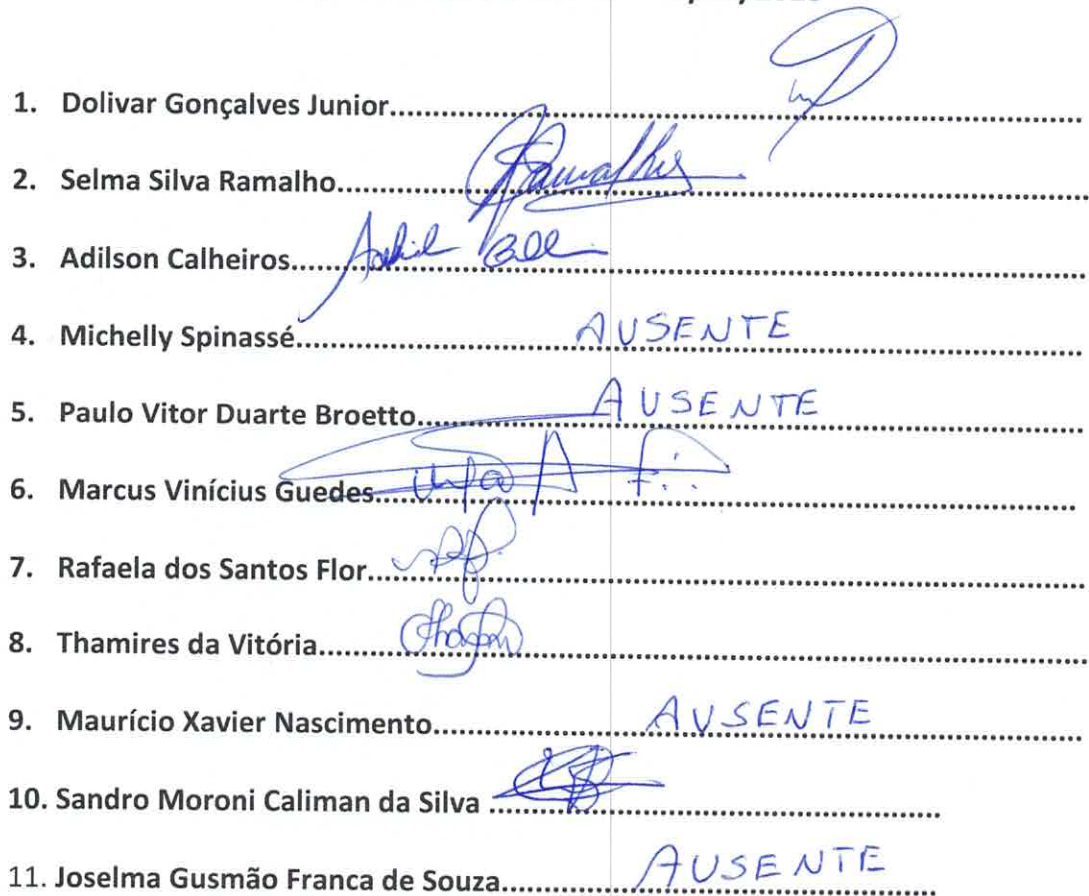 1. Dolivar Gonçalves Junior
2. Selma Silva Ramalho Ramalho
3. Adilson Calheiros
4. Michelly Spinassé AUSENTE
5. Paulo Vitor Duarte Broetto AUSENTE
6. Marcus Vinícius Guedes
7. Rafaela dos Santos Flor
8. Thamires da Vitória
9. Maurício Xavier Nascimento AUSENTE
10. Sandro Moroni Caliman da Silva
11. Joselma Gusmão Franca de Souza AUSENTE